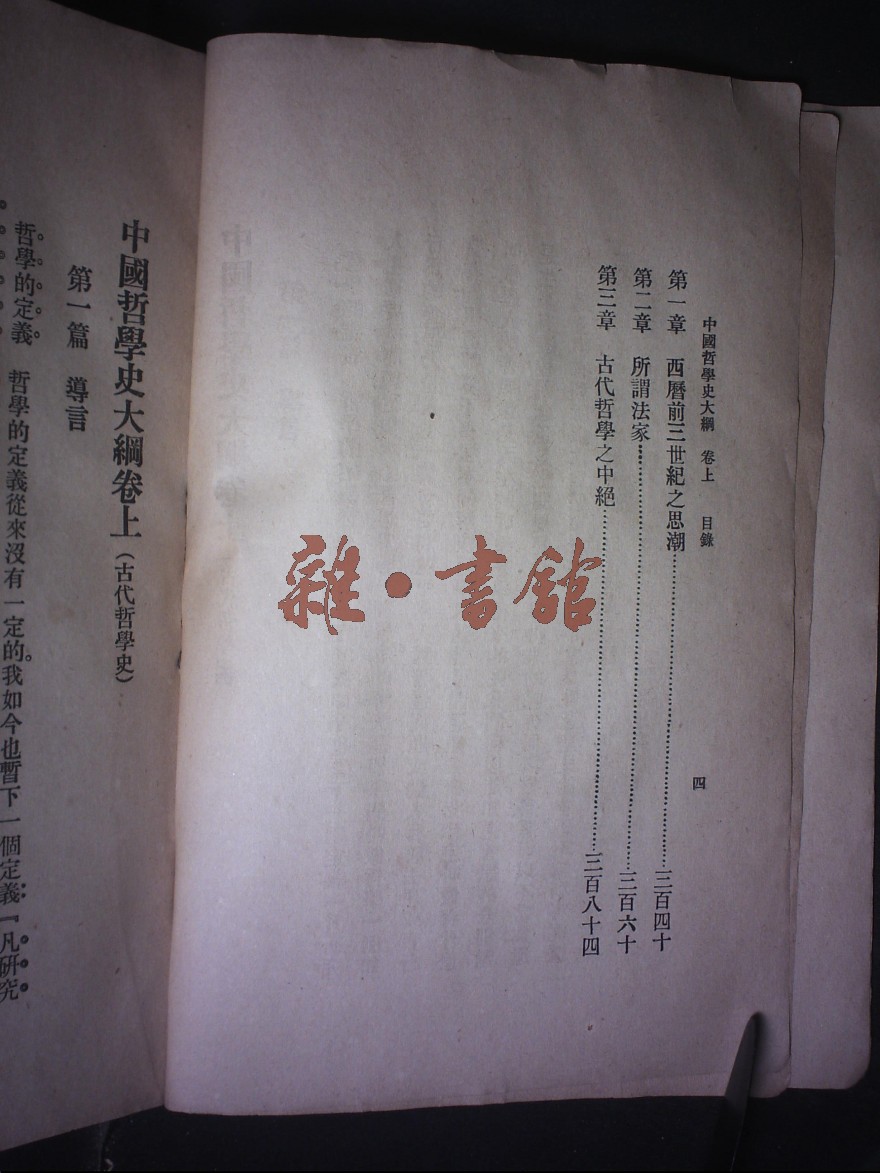 中國哲學史大綱 卷上 目錄 四
第一章 西曆前三世紀之思潮……三百四十
第二章 所謂法家……三百六十
第三章 古代哲學之中絕……三百八十四
雜·書館
中國哲學史大綱卷上（古代哲學史）
第一篇 導言
哲學的定義 哲學的定義從來沒有一定的。我如今也暫下一個定義：『凡研究